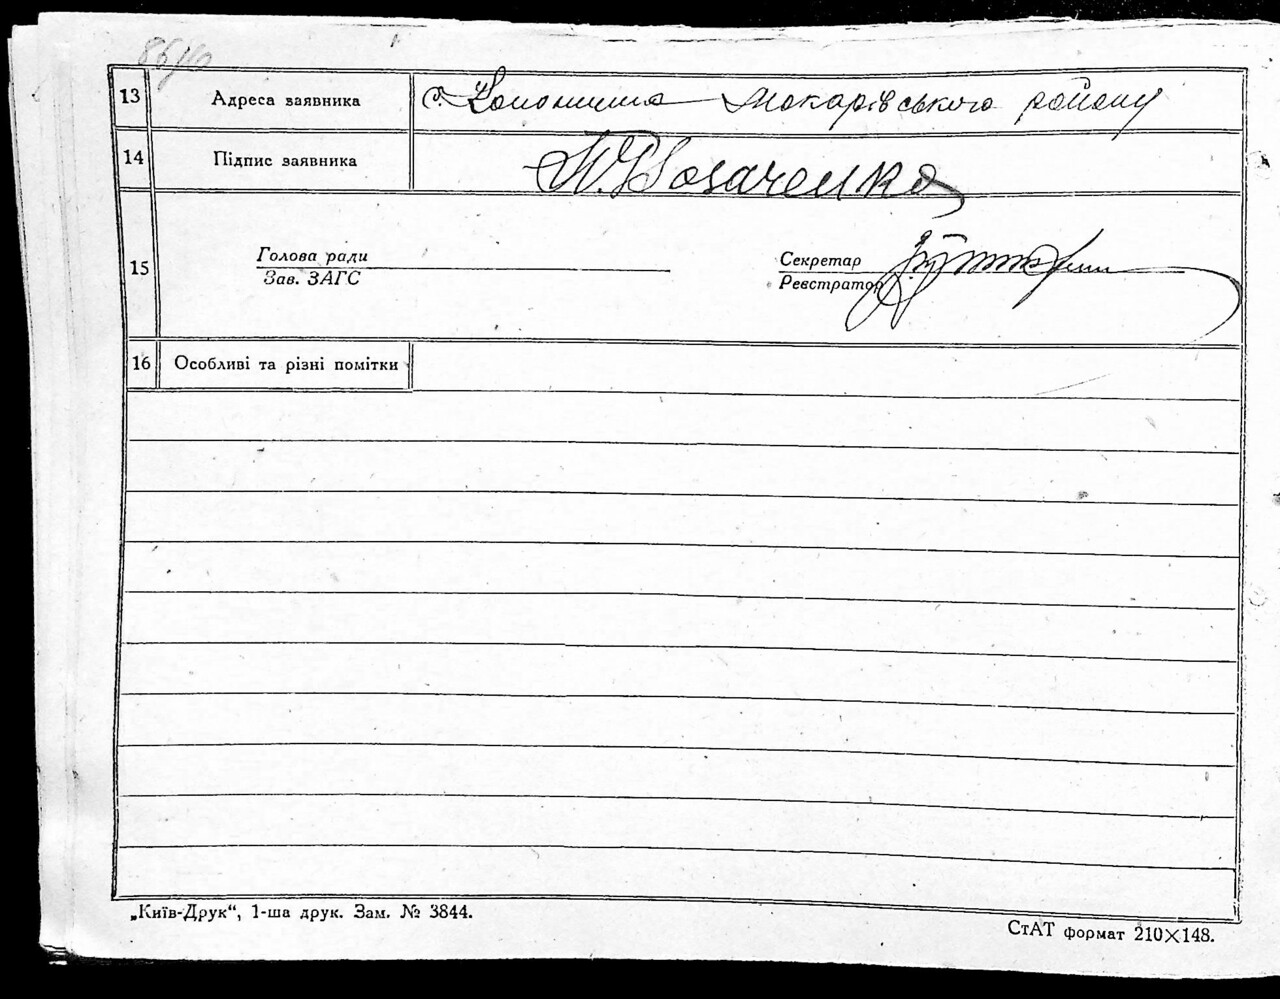 13 Адреса заявника с. Колонщина Макарівського району
14 Підпис заявника
15 Голова ради Зав. ЗАГС Секретар Реєстратор
16 Особливі та різні помітки
„Київ-Друк“, 1-ша друк. Зам. № 3844.
СтАТ формат 210×148.